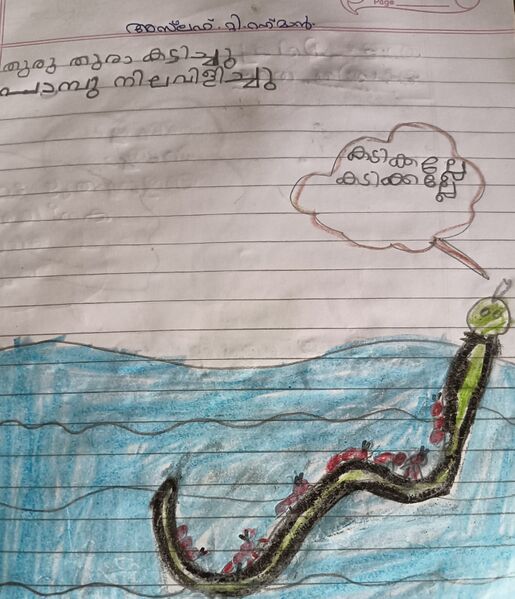 Page
അസ്‌ലഹ്. പി. റഹ്മാൻ.
തുരു തുരാ കടിച്ചു
പാമ്പു നിലവിളിച്ചു
കടിക്കല്ലേ
കടിക്കല്ലേ